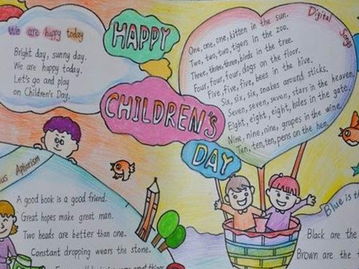 We are happy today
Bright day, sunny day.
We are happy today.
Let's go and play
on Children's Day.
HAPPY
CHILDREN'S
DAY
Digital
Song
One, one, one, kitten in the sun.
Two, two, two, tigers in the zoo.
Three, three, three, birds in the tree.
Four, four, four, dogs on the floor.
Five, five, five, bees in the hive.
Six, six, six, snakes around sticks.
Seven, seven, seven, stars in the
Eight, eight, eight, holes in the gate.
Nine, nine, nine, grapes in the wine.
Ten, ten, ten, pens on the hen.
A good book is a good friend.
Great hopes make great man.
Two heads are better than one.
Constant dropping wears the stone.
Blue is th
Black are the
Brown are the